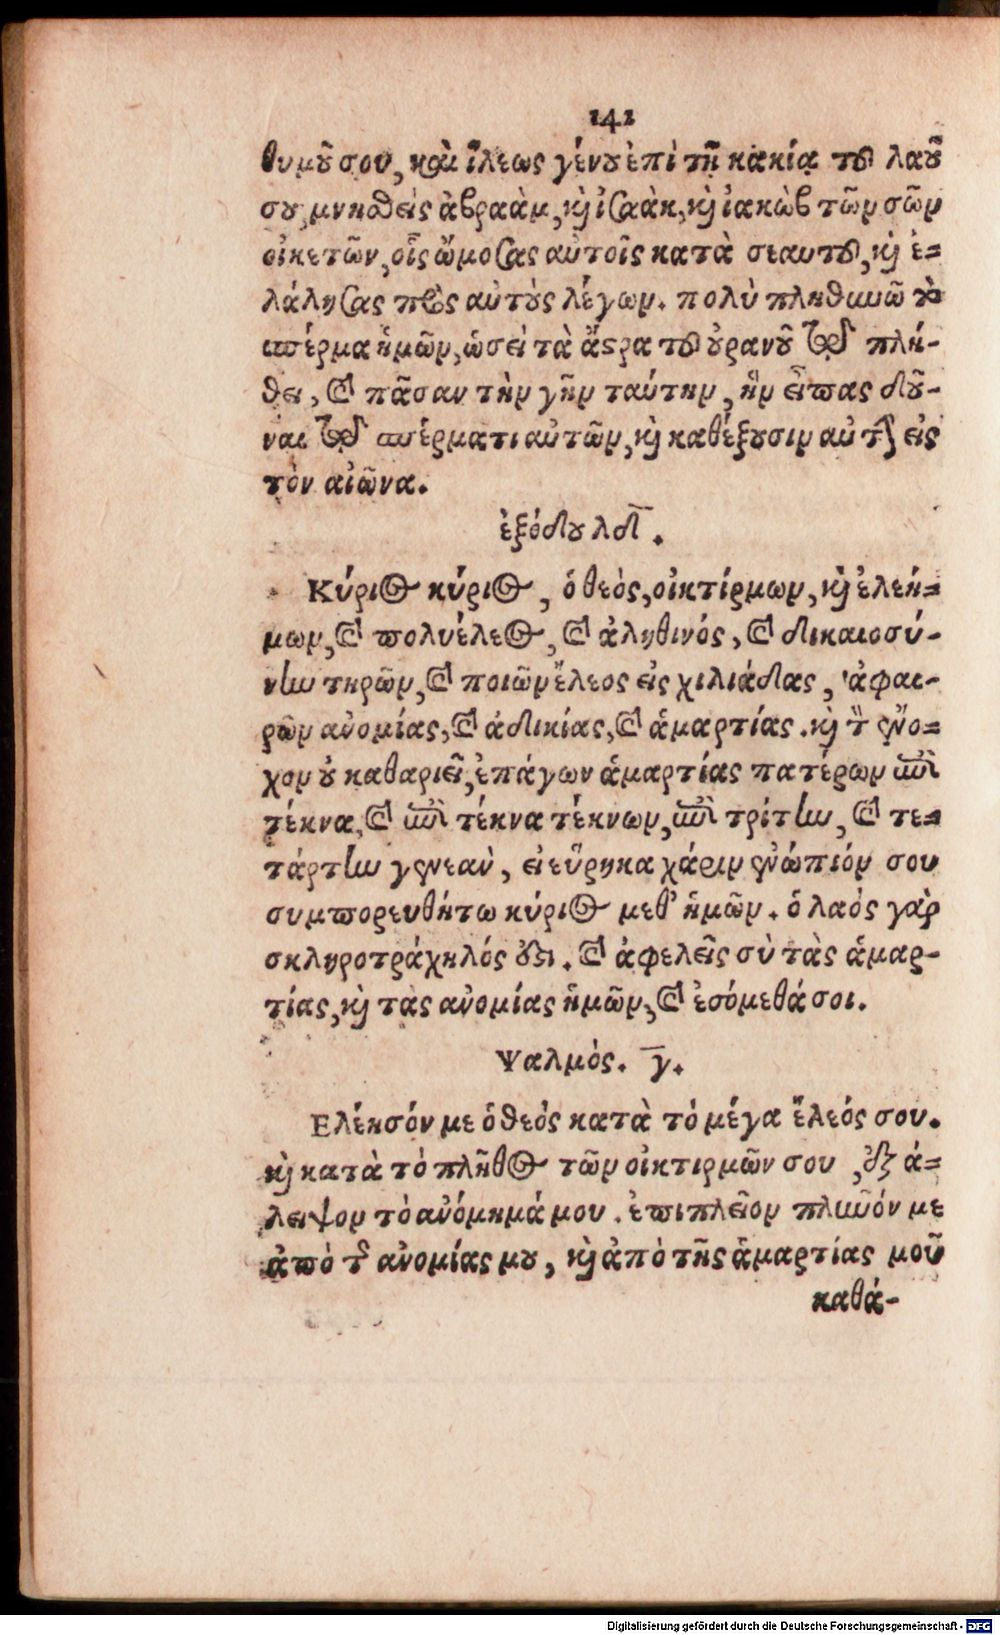 142
θυμοῦ σου, καὶ ἵλεως γένου ἐπὶ τῇ κακίᾳ τοῦ λαοῦ
σου, μνησθεὶς ἀβραὰμ, καὶ ἰσαὰκ, καὶ ἰακὼβ τῶν σῶν
οἰκετῶν, οἷς ὤμοσας αὐτοῖς κατὰ σεαυτοῦ, καὶ ἐ-
λάλησας πρὸς αὐτοὺς λέγων. πολὺ πληθυνῶ τὸ
σπέρμα ἡμῶν, ὡσεὶ τὰ ἄστρα τοῦ οὐρανοῦ τῷ πλή-
θει, καὶ πᾶσαν τὴν γῆν ταύτην, ἣν εἶπας δοῦ-
ναι τῷ σπέρματι αὐτῶν, καὶ καθέξουσιν αὐτὴν εἰς
τὸν αἰῶνα.
ἐξόδου λδ.
Κύριος κύριος, ὁ θεὸς, οἰκτίρμων, καὶ ἐλεή-
μων, καὶ πολυέλεος, καὶ ἀληθινός, καὶ δικαιοσύ-
νην τηρῶν, καὶ ποιῶν ἔλεος εἰς χιλιάδας, ἀφαι-
ρῶν ἀνομίας, καὶ ἀδικίας, καὶ ἁμαρτίας. καὶ τὸν ἔνο-
χον οὐ καθαριεῖ, ἐπάγων ἁμαρτίας πατέρων ἐπὶ
τέκνα, καὶ ἐπὶ τέκνα τέκνων, ἐπὶ τρίτην, καὶ τε-
τάρτην γενεὰν, εἰ εὕρηκα χάριν ἐνώπιόν σου
συμπορευθήτω κύριος μεθ' ἡμῶν. ὁ λαὸς γὰρ
σκληροτράχηλός ἐστι. καὶ ἀφελεῖς σὺ τὰς ἁμαρ-
τίας, καὶ τὰς ἀνομίας ἡμῶν, καὶ ἐσόμεθά σοι.
Ψαλμὸς. γ.
Ελέησόν με ὁ θεὸς κατὰ τὸ μέγα ἔλεός σου.
καὶ κατὰ τὸ πλῆθος τῶν οἰκτιρμῶν σου, ἐξά-
λειψον τὸ ἀνόμημά μου. ἐπιπλεῖον πλυνόν με
ἀπὸ τῆς ἀνομίας μου, καὶ ἀπὸ τῆς ἁμαρτίας μοῦ
καθά-
Digitalisierung gefördert durch die Deutsche Forschungsgemeinschaft - DFG